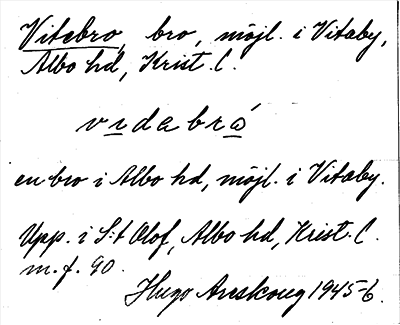 Vitebro, bro, möjl. i Vitaby,
Albo hd, Krist. l.
vıdabrá
en bro i Albo hd, möjl. i Vitaby.
Upp. i S:t Olof, Albo hd, Krist. l.
m. f. 90.
Hugo Areskoug 1945-6.